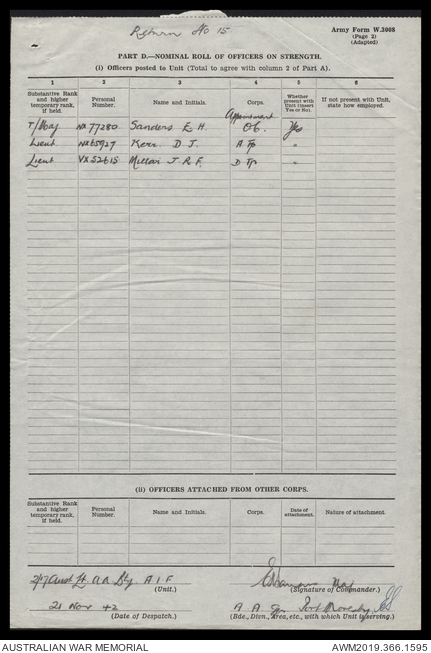 Return No 15
Army Form W.3008
(Page 2)
(Adapted)
PART D.—NOMINAL ROLL OF OFFICERS ON STRENGTH.
(i) Officers posted to Unit (Total to agree with column 2 of Part A).
1 2 3 4 5 6
Substantive Rank and higher temporary rank, if held. Personal Number. Name and Initials. Corps. Whether present with Unit (insert Yes or No). If not present with Unit, state how employed.
Appointment
T/Maj NX 77280 Sanders E. H. OC. Yes
Lieut NX65927 Kerr D J. A Tp "
Lieut VX52615 Millar J. R. F. D Tp "
(ii) OFFICERS ATTACHED FROM OTHER CORPS.
Substantive Rank and higher temporary rank, if held. Personal Number. Name and Initials. Corps. Date of attachment. Nature of attachment.
2/7 Aust Lt A A Bty. A I F Maj
(Unit.) (Signature of Commander.)
21 Nov 42 A A Port Moresby
(Date of Despatch.) (Bde., Divn., Area, etc., with which Unit is serving.)
AUSTRALIAN WAR MEMORIAL AWM2019.366.1595